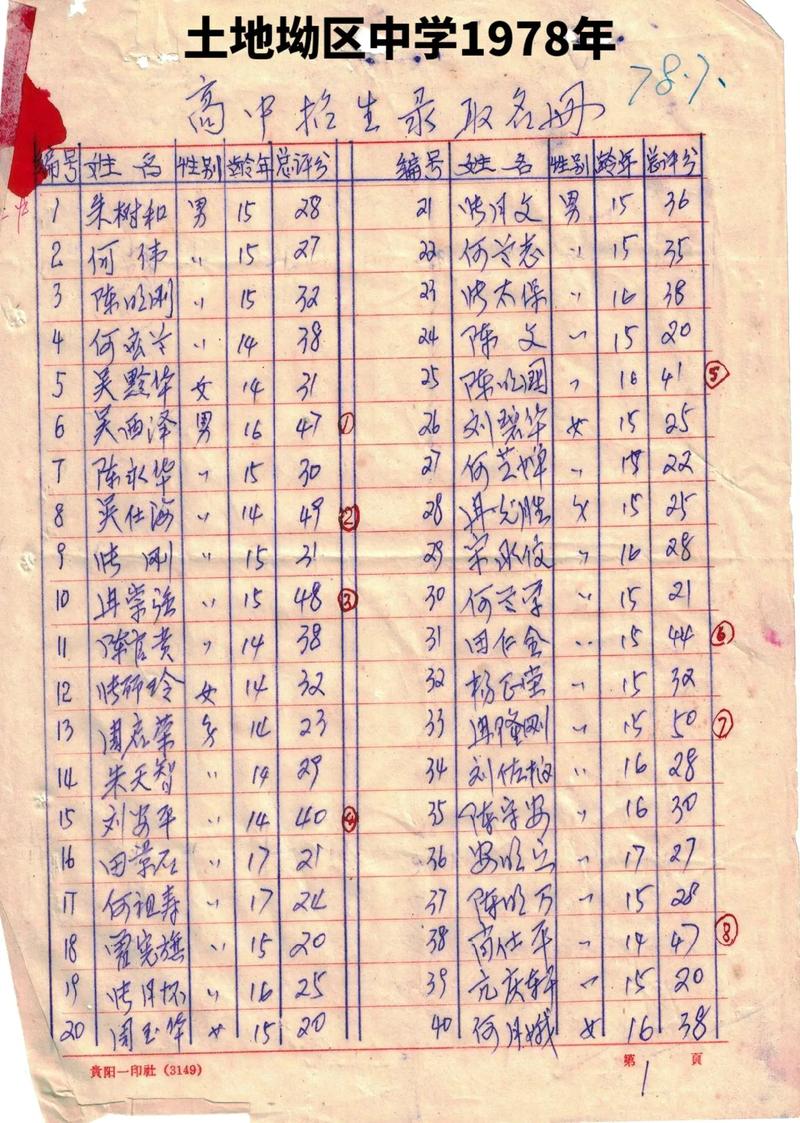 土地坳区中学1978年
高中招生录取名册 78.7.
编号 姓名 性别 龄年 总评分 编号 姓名 性别 龄年 总评分
1 朱树和 男 15 28 21 张月文 男 15 36
2 何伟 〃 15 27 22 何兰志 〃 15 35
3 陈明刚 〃 15 32 23 张太保 〃 16 38
4 何宏兰 〃 14 38 24 陈文 〃 15 20
5 吴黔华 女 14 31 25 陈明国 〃 16 41 ⑤
6 吴西泽 男 16 47 ① 26 刘碧华 女 15 25
7 陈永华 〃 15 30 27 何芝婵 〃 15 22
8 吴仕海 〃 14 49 ② 28 胜 15 25
9 张刚 〃 15 31 29 宋永俊 〃 16 28
10 冉崇强 〃 15 48 ③ 30 何兰 〃 15 21
11 陈官贵 〃 14 38 31 田仁金 〃 15 44 ⑥
12 张玲 女 14 32 32 杨正 〃 15 32
13 周荣 14 23 33 冉隆刚 〃 15 50 ⑦
14 朱天智 〃 14 29 34 刘佐柏 〃 16 28
15 刘安平 〃 14 40 ④ 35 陈守安 〃 16 30
16 田景石 〃 17 21 36 安明立 〃 17 27
17 何祖寿 〃 17 24 37 陈明万 〃 15 28
18 宪旗 〃 15 20 38 仕平 〃 14 47 ⑧
19 张月怀 〃 16 25 39 庆轩 〃 15 20
20 周玉华 女 15 20 40 何月娥 女 16 38
貴阳一印社(3149) 第 1 頁